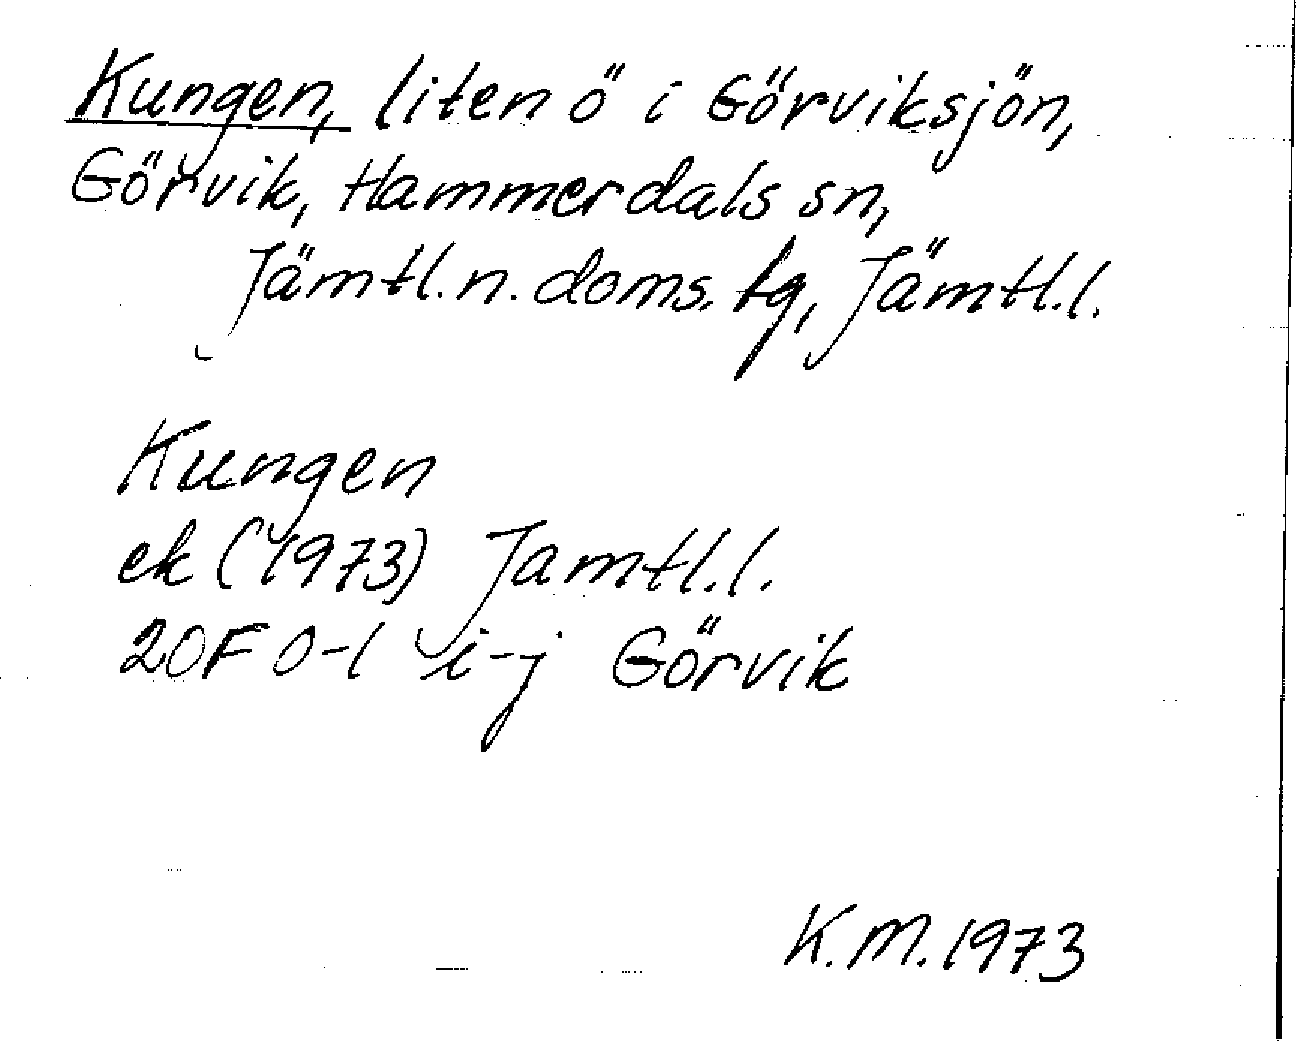 Kungen, liten ö i Görviksjön,
Görvik, Hammerdals sn,
Jämtl.n.doms.tg, Jämtl.l.
Kungen
ek (1973) Jamtl.l.
20F 0-1 i-j Görvik
K.M.1973